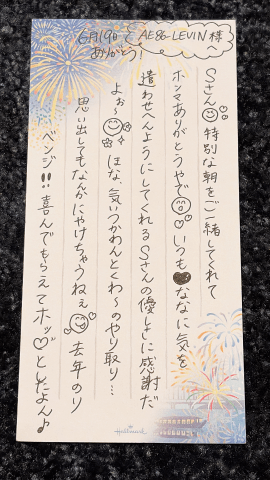 6月19日で AE86-LEVIN様へ
ありがとう!
Sさん 特別な朝をご一緒してくれて
ホンマありがとうやで いつも♥ななに気を
遣わせへんようにしてくれるSさんの優しさに感謝だ
よぉ〜 ほな、気いつかわんとくわ〜のやり取り…
思い出してもなんか、にやけちゃうねぇ 去年のリ
ベンジ!! 喜んでもらえてホッ♡としたよん♪
Hallmark